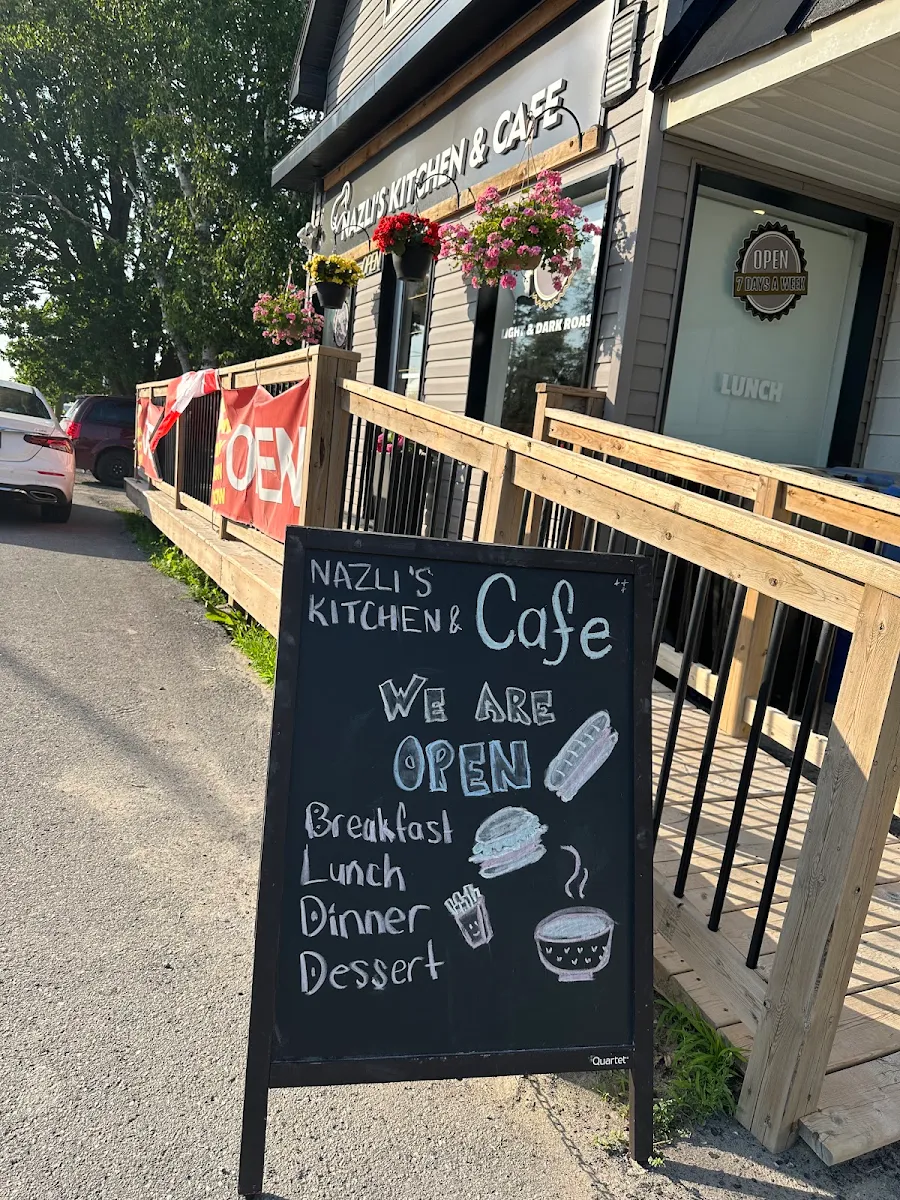 NAZLI'S KITCHEN & CAFE
OPEN
7 DAYS A WEEK
LIGHT & DARK ROAS
LUNCH
OPEN
NAZLI'S
KITCHEN & Cafe
WE ARE
OPEN
Breakfast
Lunch
Dinner
Dessert
Quartet